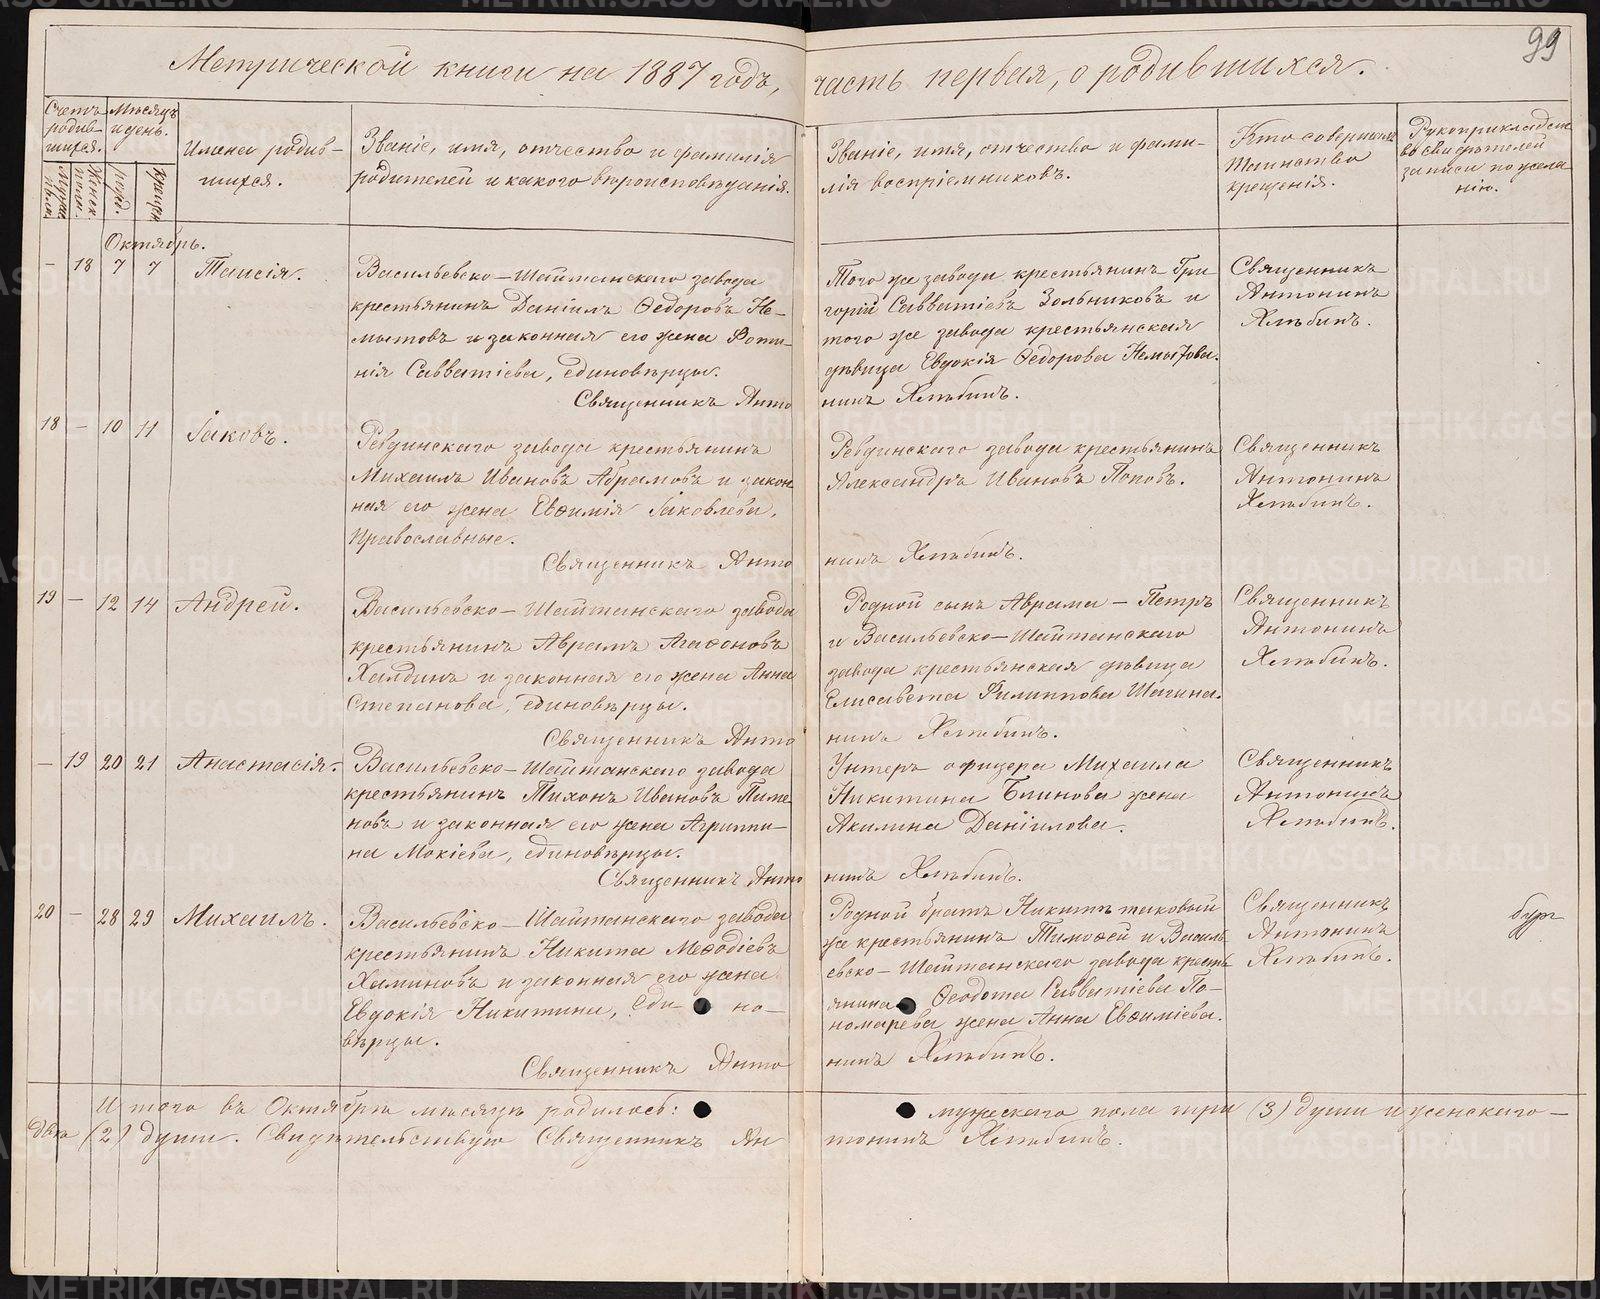 99
Метрической книги на 1887 годъ, часть первая, о родившихся.
Счетъ родив-шихся.
Мѣсяцъ и день.
Имена родив-
шихся.
Званіе, имя, отчество и фамилія
родителей и какого вѣроисповѣданія.
Званіе, имя, отчество и фами-
лія воспріемниковъ.
Кто совершалъ
таинство
крещенія.
Рукоприкладст
во свидѣтелей
записи по жела
нію.
Октябрь.
— 18 7 7 Таисія.
Васильевско-Шайтанскаго завода
крестьянинъ Даніилъ Ѳедоровъ Не-
мытовъ и законная его жена Фоти-
нія Савватіева, единовѣрцы.
Священникъ Анто
Того же завода крестьянинъ Гри
горій Савватіевъ Зольниковъ и
того же завода крестьянская
дѣвица Евдокія Ѳедорова Немытова.
нинъ Хлѣбинъ.
Священникъ
Антонинъ
Хлѣбинъ.
18 — 10 11 Іаковъ.
Ревдинскаго завода крестьянинъ
Михаилъ Ивановъ Абрамовъ и закон
ная его жена Евѳимія Іаковлева,
православные.
Священникъ Анто
Ревдинскаго завода крестьянинъ
Александръ Ивановъ Поповъ.
нинъ Хлѣбинъ.
Священникъ
Антонинъ
Хлѣбинъ.
19 — 12 14 Андрей.
Васильевско-Шайтанскаго завода
крестьянинъ Аврамъ Агаѳоновъ
Халдинъ и законная его жена Анна
Степанова, единовѣрцы.
Священникъ Анто
Родной сынъ Аврама — Петръ
и Васильевско-Шайтанскаго
завода крестьянская дѣвица
Елисавета Филиппова Шагина.
нинъ Хлѣбинъ.
Священникъ
Антонинъ
Хлѣбинъ.
— 19 20 21 Анастасія.
Васильевско-Шайтанскаго завода
крестьянинъ Тихонъ Ивановъ Пиме
новъ и законная его жена Агриппи-
на Мокіева, единовѣрцы.
Священникъ Анто
Унтеръ офицера Михаила
Никитина Блинова жена
Акилина Даніилова.
нинъ Хлѣбинъ.
Священникъ
Антонинъ
Хлѣбинъ.
20 — 28 29 Михаилъ.
Васильевско-Шайтанскаго завода
крестьянинъ Никита Меѳодіевъ
Хаминовъ и законная его жена
Евдокія Никитина, еди- но-
вѣрцы.
Священникъ Анто
Родной братъ Никиты таковый
же крестьянинъ Тимоѳей и Василь
евско-Шайтанскаго завода кресть
янина Ѳеодота Савватіева По-
номарева жена Анна Евѳиміева.
нинъ Хлѣбинъ.
Священникъ
Антонинъ
Хлѣбинъ.
Итого въ Октябрѣ мѣсяцѣ родилось: мужескаго пола три (3) души и женскаго —
двѣ (2) души. Свидѣтельствую Священникъ Ан
тонинъ Хлѣбинъ.
METRIKI.GASO-URAL.RU